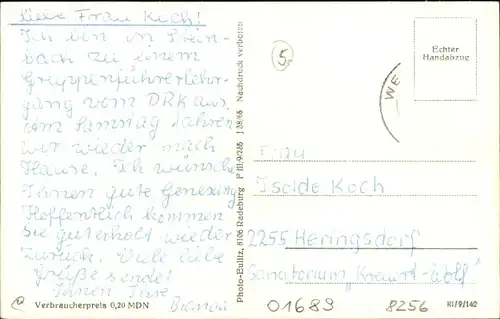 Liebe Frau Koch!
Ich bin in Stein-
bach zu einem
Gruppenführerlehr-
gang vom DRK aus.
Am Samstag fahren
wir wieder nach
Hause. Ich wünsche
Ihnen gute Genesung
Hoffentlich kommen
Sie gut erholt wieder
zurück. Viele liebe
Grüße sendet
Ihnen Ihre
Bianca
Verbraucherpreis 0,20 MDN
Photo-Eulitz, 8106 Radeburg P III/9/235 J 38/65 Nachdruck verboten
5
WE
Echter
Handabzug
Frau
Isolde Koch
2255 Heringsdorf
Sanatorium
01689
8256
III/9/142